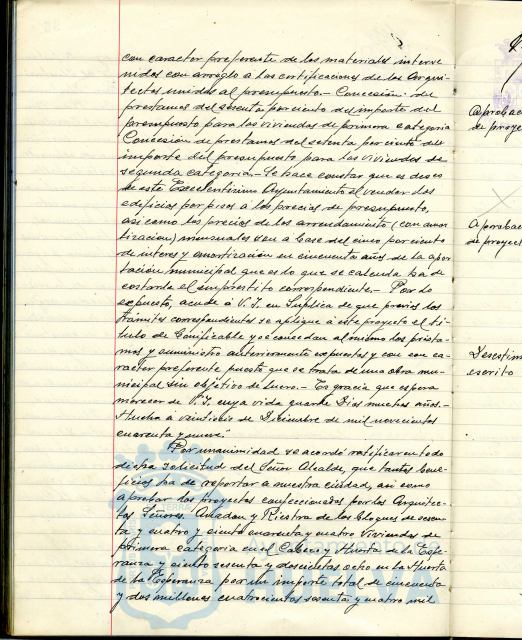 con caracter preferente de los materiales interve-
nidos con arreglo a las certificaciones de los Arqui-
tectos unidas al presupuesto.- Concesión de
prestamos del sesenta por ciento del importe del
presupuesto para las viviendas de primera categoria
Concesión de prestamos del setenta por ciento del
importe del presupuesto para las viviendas de
segunda categoria.- Se hace constar que es deseo
de este Excelentisimo Ayuntamiento el vender los
edificios por pisos a los precios de presupuesto,
asi como los precios de los arrendamiento (con amor-
tizacion) mensuales sea a base del cinco por ciento
de interes y amortización en cincuenta años de la apor-
tación municipal que es lo que se calcula ha de
costarle el emprestito correspondiente.- Por lo
expuesto, acude á V.I. en Suplica de que previos los
trámites correspondientes se aplique á este proyecto el ti-
tulo de Bonificable y se concedan al mismo los présta-
mos y suministro anteriormente expuestos y con son ca-
racter preferente puesto que se trata de una obra mu-
nicipal sin objetivo de lucro.- Es gracia que espera
merecer de V.I. cuya vida guarde Dios muchos años.-
Huelva a veintiseis de Diciembre de mil novecientos
cuarenta y nueve.
Por unanimidad se acordó ratificar en todo
dicha solicitud del Señor Alcalde, que tantos bene-
ficios ha de reportar a nuestra ciudad, asi como
aprobar los proyectos confeccionados por los Arquitec-
tos Señores Anadon y Riestra de los bloques de sesen-
ta y cuatro y ciento cuarenta y cuatro Viviendas de
primera categoria en el Cabezo y Huerta de la Espe-
ranza y ciento sesenta y doscientas ocho en la Huerta
de la Esperanza por un importe total de cincuenta
y dos millones cuatrocientos sesenta y cuatro mil
Aprobac
de proye
Aprobac
de proyect
Desestim
escrito